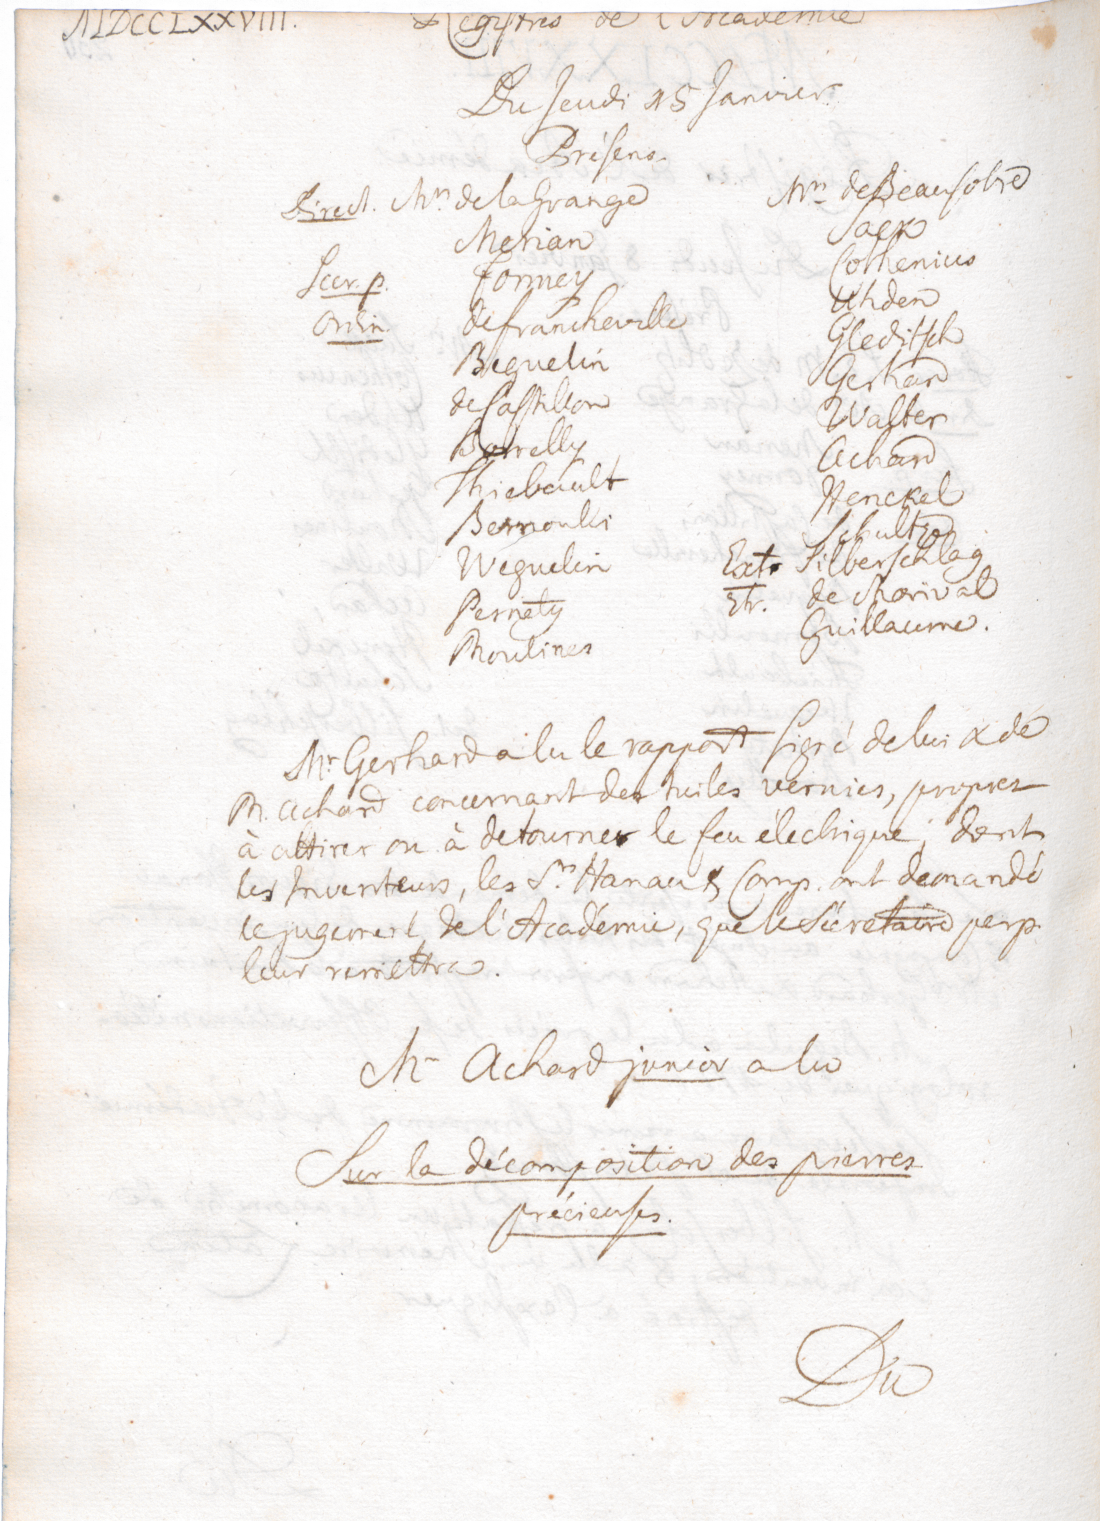 MDCCLXXVIII. Registres de l'Academie
Du Jeudi 15 Janvier
Présens.
Direct. Mrs. de la Grange
Merian
Secr. p. Formey
Ordin. de Francheville
Beguelin
de Castillon
Borrelly
Thiebault
Bernoulli
Weguelin
Pernety
Moulines
Mrs. de Beausobre
Sack
Cothenius
Uhden
Gleditsch
Gerhard
Walter
Achard
Henckel
Schultze
Extr. Silberschlag
Etr. de Morival
Guillaume.
Mr. Gerhard a lu le rapport signé de lui & de
M. Achard concernant des tuiles vernies, propres
à attirer ou à detourner le feu électrique, dont
les Inventeurs, les Srs. Hanau & Comp. ont demandé
le jugement de l'Académie, que le Sécretaire perp.
leur remettra.
Mr. Achard junior a lu
Sur la décomposition des pierres
précieuses.
Du